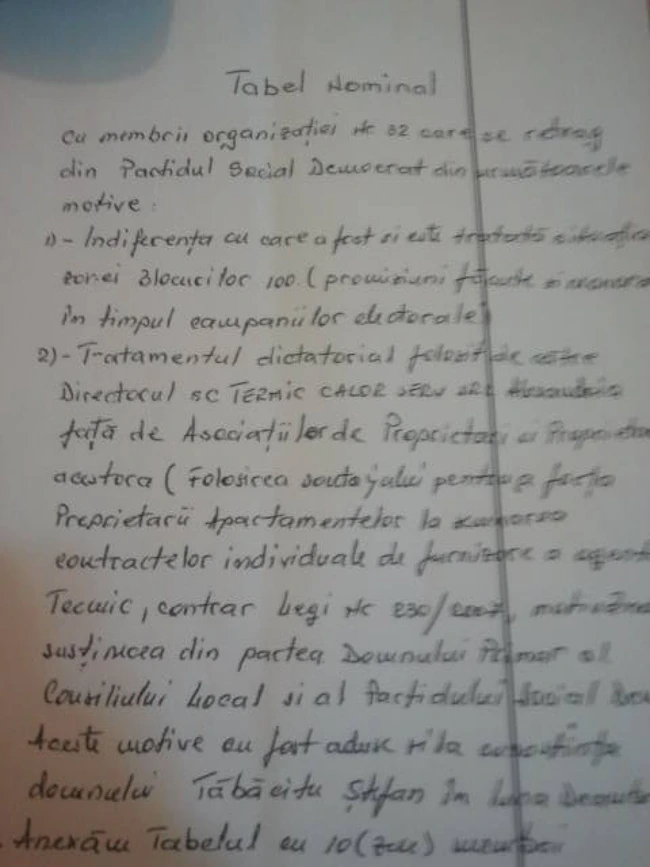 Tabel Nominal
cu membrii organizației Nr 32 care se retrag
din Partidul Social Democrat din următoarele
motive :
1) - Indiferența cu care a fost si este tratată situația
zonei Blocurilor 100 ( promisiuni făcute
în timpul campaniilor electorale)
2) - Tratamentul dictatorial folosit de către
Directorul SC TERMIC CALOR SERV SRL Alexandria
față de Asociațiilor de Proprietari si
acestora ( Folosirea șantajului pentru a forța
Proprietarii Apartamentelor la
contractelor individuale de furnizare a agent
Tecnic, contrar Legi Nr 230/2007,
susținerea din partea Domnului Primar al
Consiliului Local si al Partidului Social
Aceste motive au fost aduse si la cunostința
domnului Tăbăcitu Ștefan în luna
Anexăm Tabelul cu 10 (zece) membri